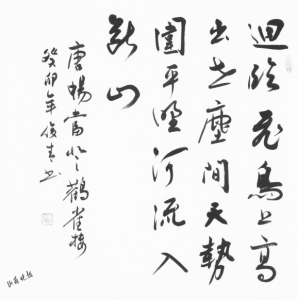 迥臨飛鳥上高
出世塵間天勢
圍平野河流入
斷山
唐暢當登鸛雀樓
癸卯年俊青書